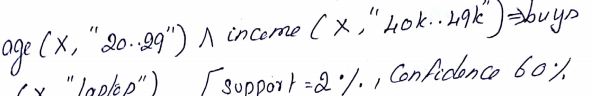 age (X, "20..29") ∧ income (X, "40k..49k") ⇒ buys
(X "laptop") [Support = 2%., Confidence 60%